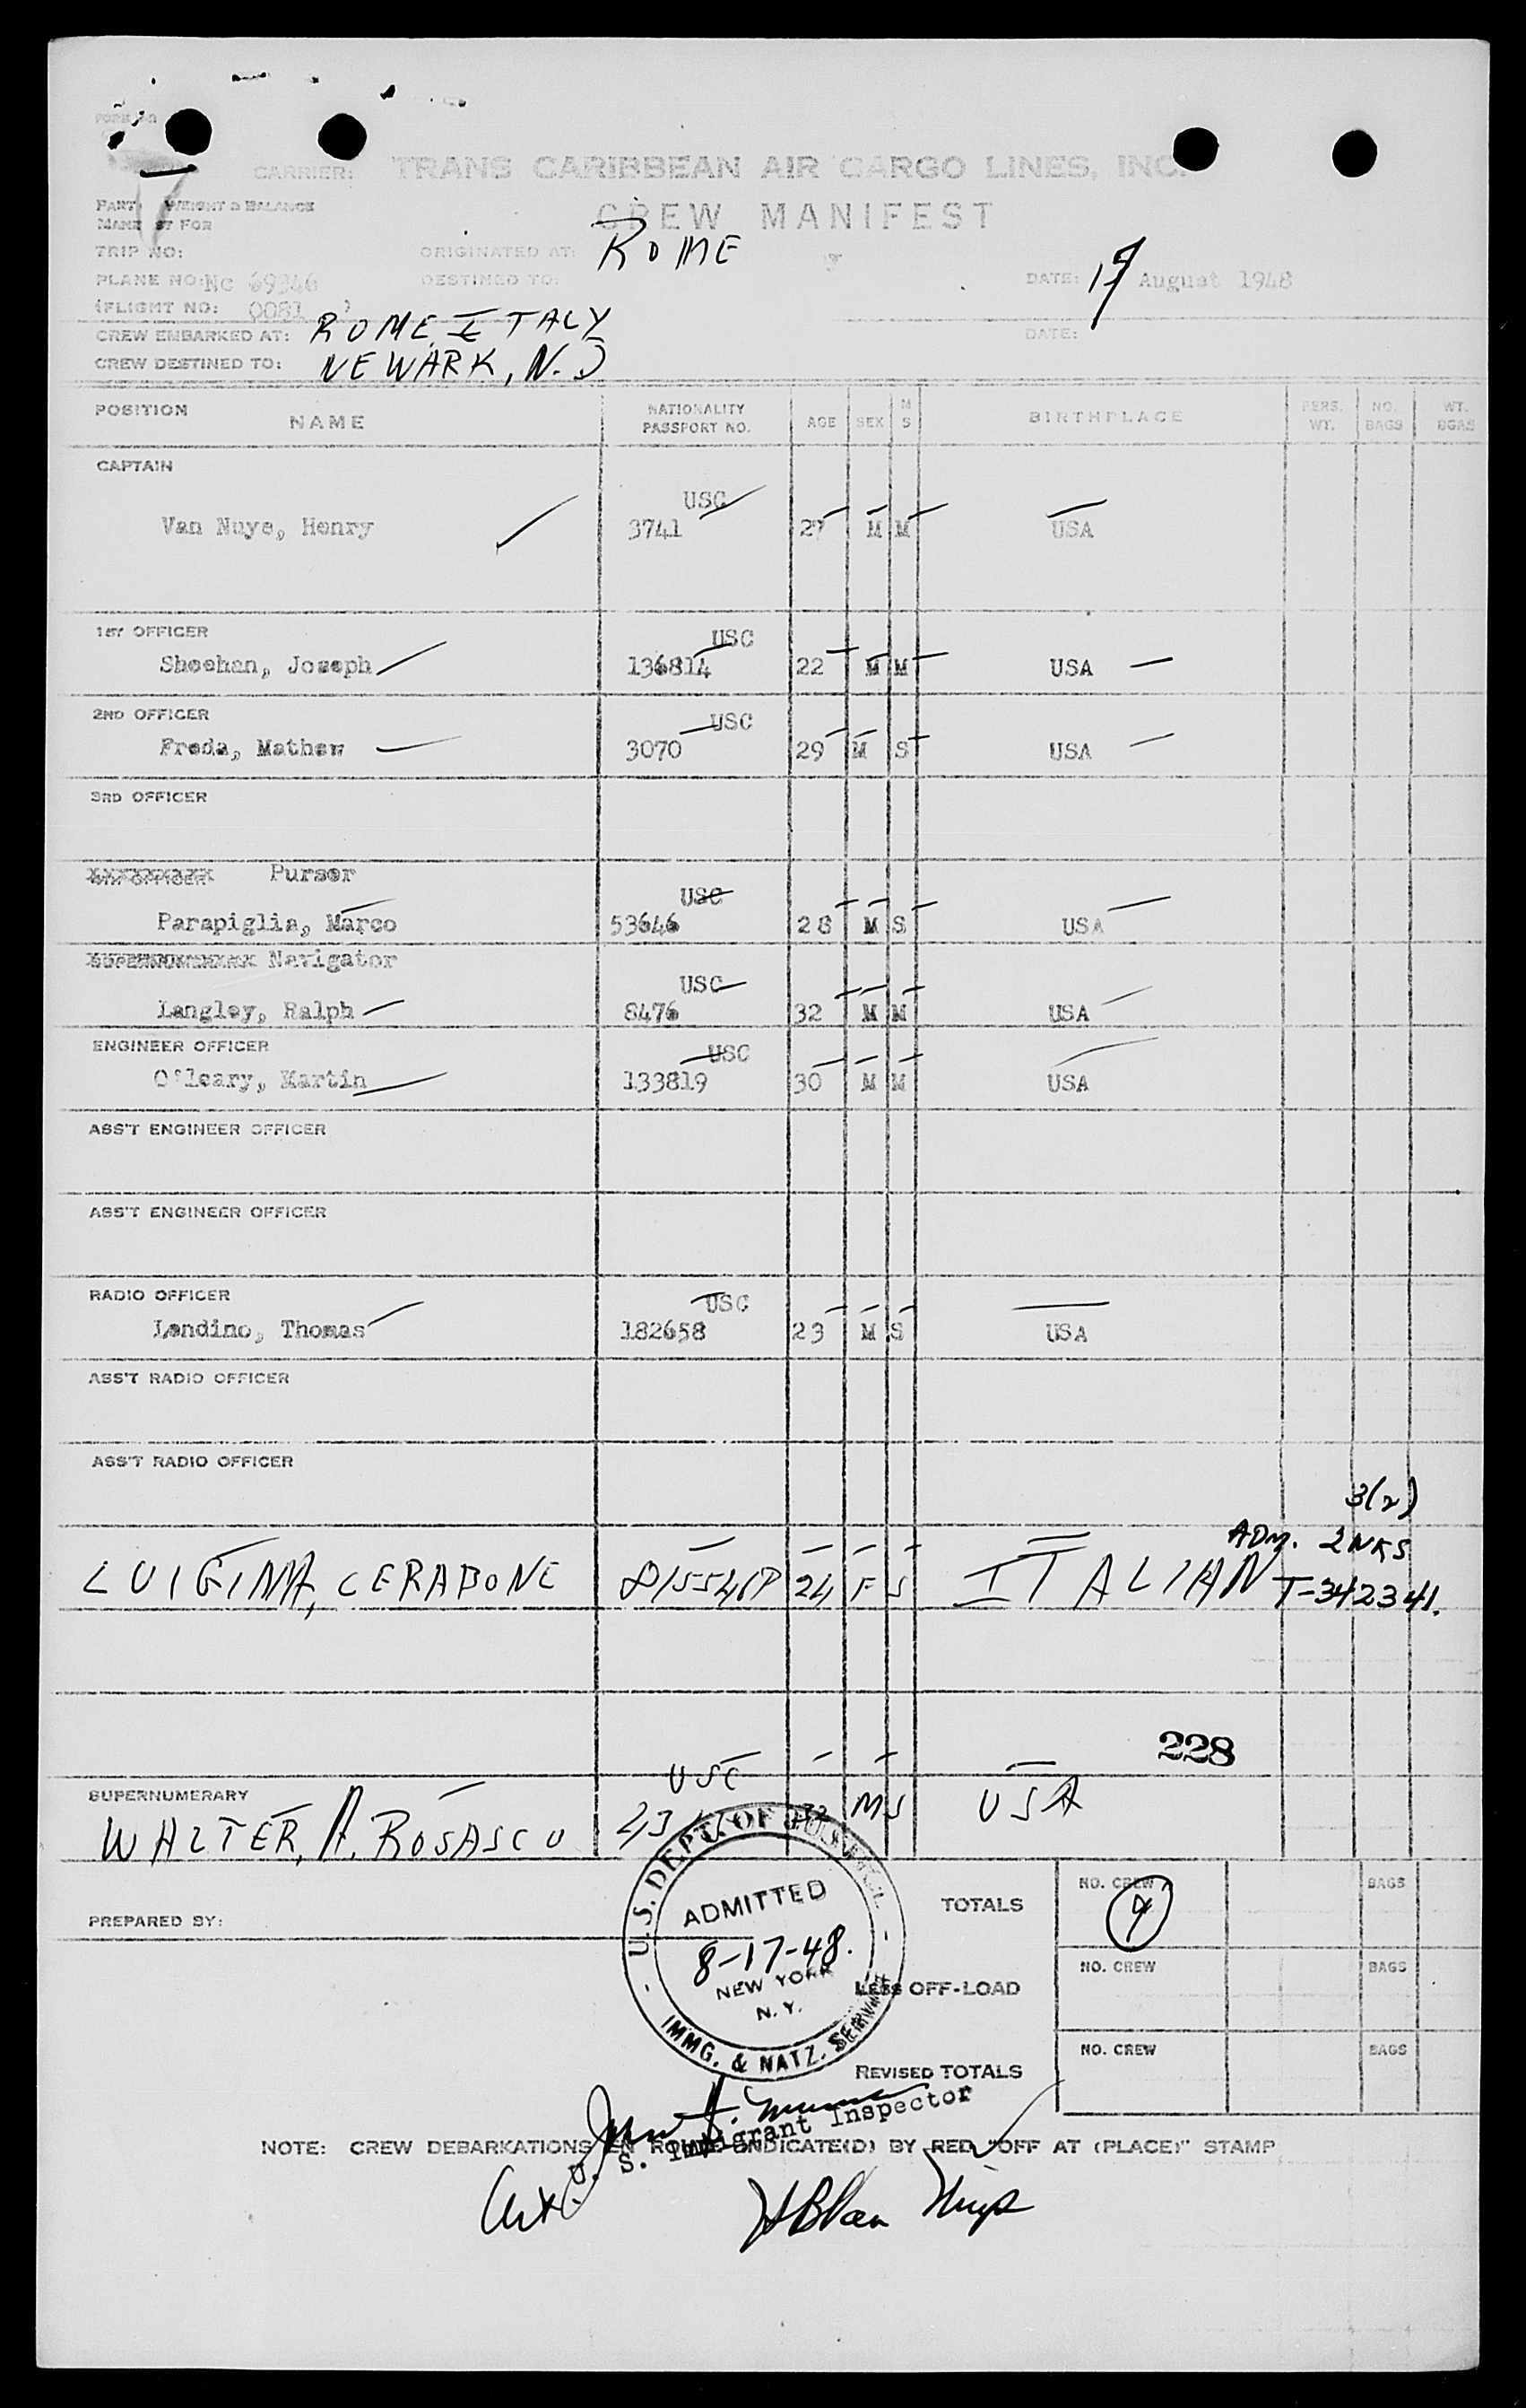 CARRIER: TRANS CARIBBEAN AIR CARGO LINES, INC.
PART: WEIGHT & BALANCE
CREW MANIFEST
TRIP NO:
ORIGINATED AT: ROME
PLANE NO: NC 69346
DESTINED TO:
DATE: 17 August 1948
(FLIGHT NO: 0081 )
CREW EMBARKED AT: ROME ITALY
DATE:
CREW DESTINED TO: NEWARK, N.J
POSITION NAME NATIONALITY PASSPORT NO. AGE SEX M S BIRTHPLACE PERS. WT. NO. BAGS WT. BGAS
CAPTAIN
USC
Van Nuys, Henry 3741 27 M M USA
1ST OFFICER USC
Sheehan, Joseph 136814 22 M M USA
2ND OFFICER USC
Freda, Mathew 3070 29 M S USA
3RD OFFICER
4TH OFFICER Purser
USC
Parapiglia, Marco 53646 28 M S USA
SUPERNUMERARY Navigator
USC
Langley, Ralph 8476 32 M M USA
ENGINEER OFFICER USC
O'leary, Martin 133819 30 M M USA
ASS'T ENGINEER OFFICER
ASS'T ENGINEER OFFICER
RADIO OFFICER USC
Lendino, Thomas 182658 23 M S USA
ASS'T RADIO OFFICER
ASS'T RADIO OFFICER
3(2)
ADM. 2 WKS
LUIGINA, CERABONE 815546P 24 F S ITALIAN T-342341.
228
SUPERNUMERARY USC
WALTER, A. ROSASCO M S USA
U.S. DEPT. OF JUSTICE
ADMITTED
8-17-48.
NEW YORK
N.Y.
IMMG. & NATZ. SERVICE
TOTALS NO. CREW 9 BAGS
PREPARED BY:
LESS OFF-LOAD NO. CREW BAGS
REVISED TOTALS NO. CREW BAGS
U. S. Immigrant Inspector
NOTE: CREW DEBARKATIONS EN ROUTE INDICATE(D) BY RED "OFF AT (PLACE)" STAMP